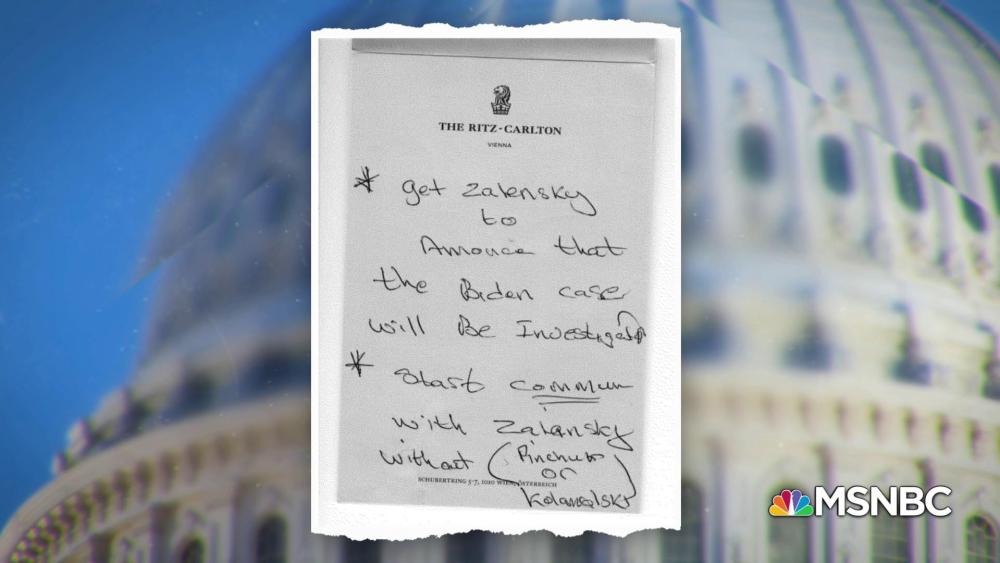 THE RITZ-CARLTON
VIENNA
* get Zalensky
to
Annouce that
the Biden case
will Be Investigated
* Start commun
with Zalansky
without (Pinchuk
or
Kolamolsky)
SCHUBERTRING 5-7, 1010 WIEN, ÖSTERREICH
MSNBC